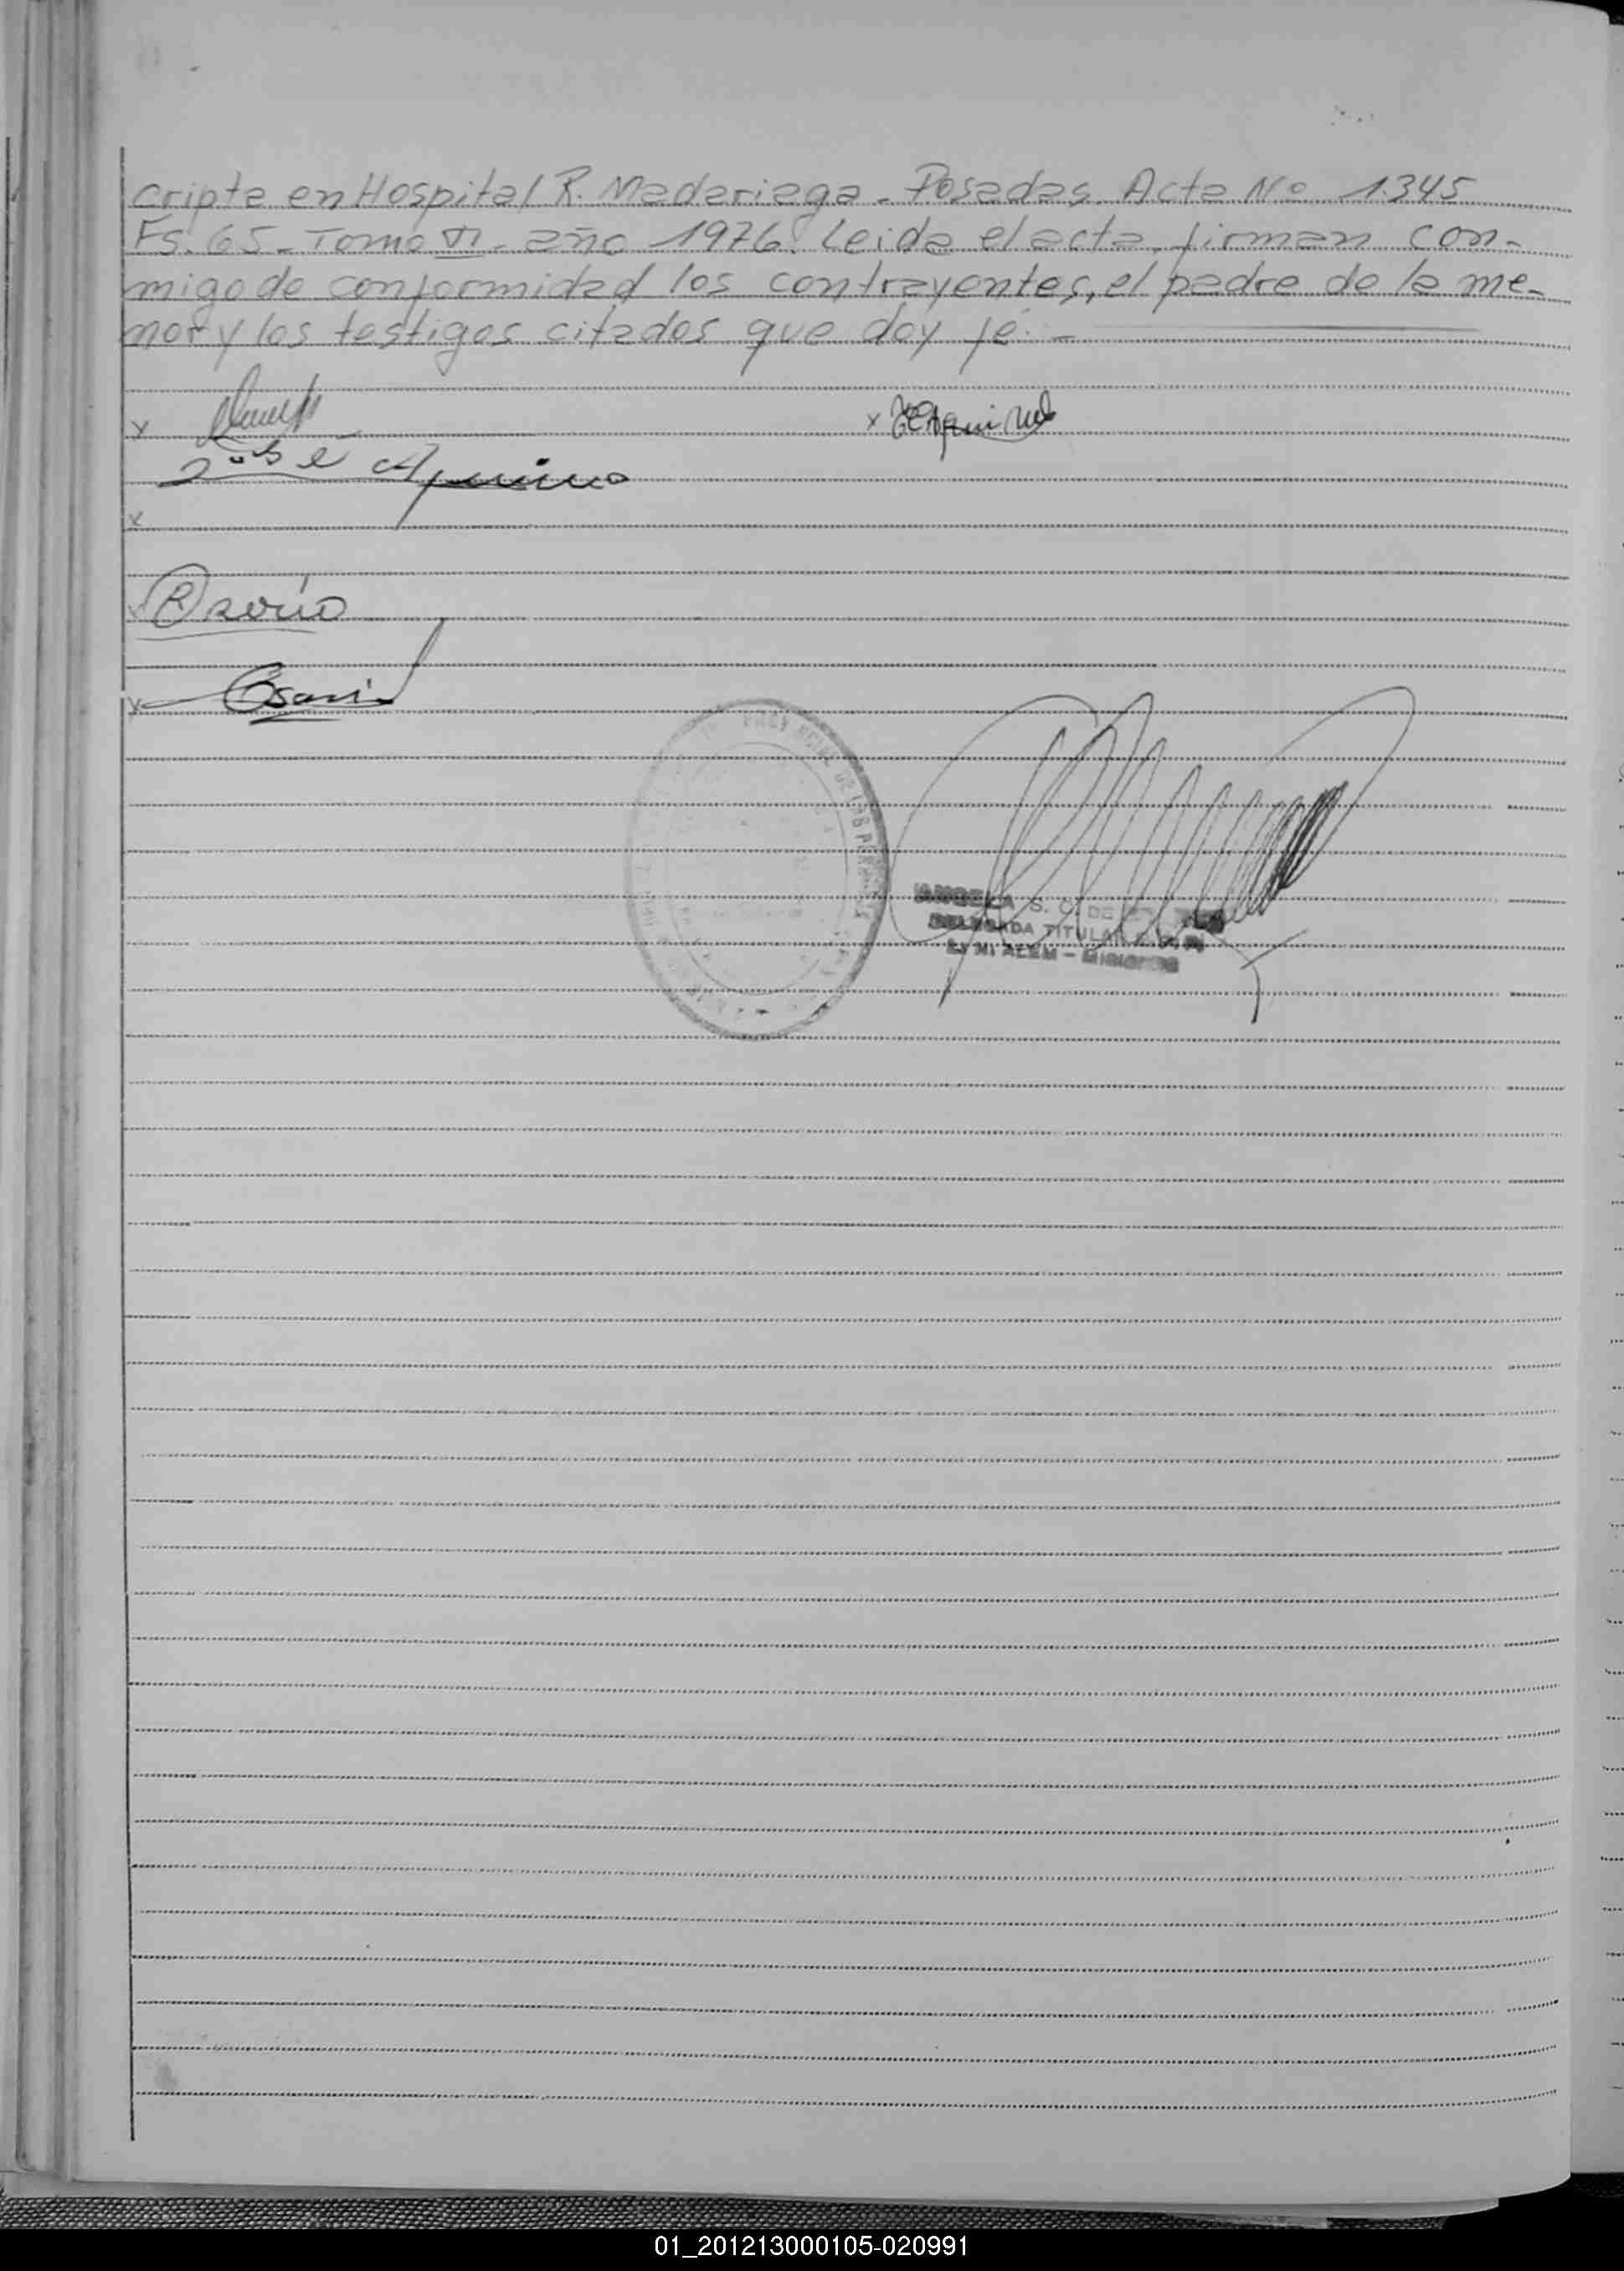 cripta en Hospital R. Madariaga - Posadas. Acta No 1.345
Fs. 65 - Tomo VI - año 1976. Leida el acta, firman con-
migo de conformidad los contrayentes, el padre de la me-
nor y los testigos citados que doy fé. -
x
x
José Aquino
x
x Osorio
x
ANGELA S. C. DE
DELEGADA TITULAR
L. N. ALEM - MISIONES
01_201213000105-020991